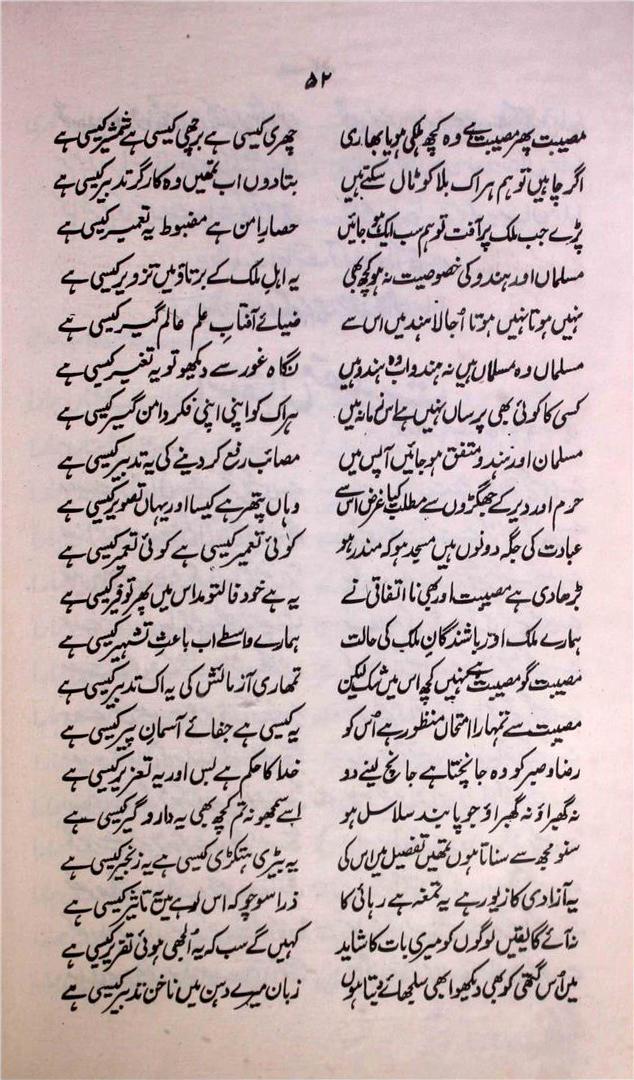 ۵۲
مصیبت پھر مصیبت ہے وہ کچھ ہلکی ہو یا بھاری چھری کیسی ہے برچھی کیسی ہے شمشیر کیسی ہے
اگر چاہیں تو ہم ہر اک بلا کو ٹال سکتے ہیں بتا دوں اب تمھیں وہ کارگر تدبیر کیسی ہے
پڑے جب ملک پر آفت تو ہم سب ایک ہو جائیں حصارِ امن ہے مضبوط یہ تعمیر کیسی ہے
مسلماں اور ہندو کی خصوصیت نہ ہو کچھ بھی یہ اہلِ ملک کے برتاؤ میں تزویر کیسی ہے
نہیں ہوتا نہیں ہوتا اُجالا ہند میں اس سے ضیائے آفتابِ علم عالم گیر کیسی ہے
مسلماں وہ مسلماں ہیں نہ ہندو اب وہ ہندو ہیں نگاہ غور سے دیکھو تو یہ تغییر کیسی ہے
کسی کا کوئی بھی پرساں نہیں ہے اس زمانہ میں ہر اک کو اپنی اپنی فکر دامن گیر کیسی ہے
مسلمان اور ہندو متفق ہو جائیں آپس میں مصائب رفع کر دینے کی یہ تدبیر کیسی ہے
حرم اور دیر کے جھگڑوں سے مطلب کیا غرض اس سے وہاں پتھر ہے کیسا اور یہاں تصویر کیسی ہے
عبادت کی جگہ دونوں ہیں مسجد ہو کہ مندر ہو کوئی تعمیر کیسی ہے کوئی تعمیر کیسی ہے
بڑھا دی ہے مصیبت اور بھی نا اتفاقی نے یہ ہے خود فالتو مد اس میں پھر توفیر کیسی ہے
ہمارے ملک اور باشندگانِ ملک کی حالت ہمارے واسطے اب باعثِ تشہیر کیسی ہے
مصیبت گو مصیبت ہے نہیں کچھ اس میں شک لیکن تمھاری آزمائش کی یہ اک تدبیر کیسی ہے
مصیبت سے تمہارا امتحاں منظور ہے اُس کو یہ کیسی ہے جفائے آسمانِ پیر کیسی ہے
رضا و صبر کو وہ جانچتا ہے جانچ لینے دو خدا کا حکم ہے بس اور یہ تعزیر کیسی ہے
نہ گھبراؤ نہ گھبراؤ جو پابند سلاسل ہو اسے سمجھو نہ تم کچھ بھی یہ دار و گیر کیسی ہے
سنو مجھ سے سناتا ہوں تمھیں تفصیل میں اس کی یہ بیڑی ہتکڑی کیسی ہے یہ زنجیر کیسی ہے
یہ آزادی کا زیور ہے یہ تمغہ ہے رہائی کا ذرا سوچو کہ اس لوہے میں یہ تاثیر کیسی ہے
نہ آئے گا یقیں لوگوں کو میری بات کا شاید کہیں گے سب کہ یہ اُلجھی ہوئی تقریر کیسی ہے
میں اُس گتھی کو بھی دیکھو ابھی سلجھائے دیتا ہوں زبان میرے دہن میں ناخن تدبیر کیسی ہے